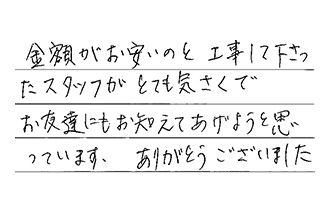 金額がお安いのと 工事して下さっ
たスタッフが とても気さくで
お友達にもお知えてあげようと思
っています、 ありがとうございました